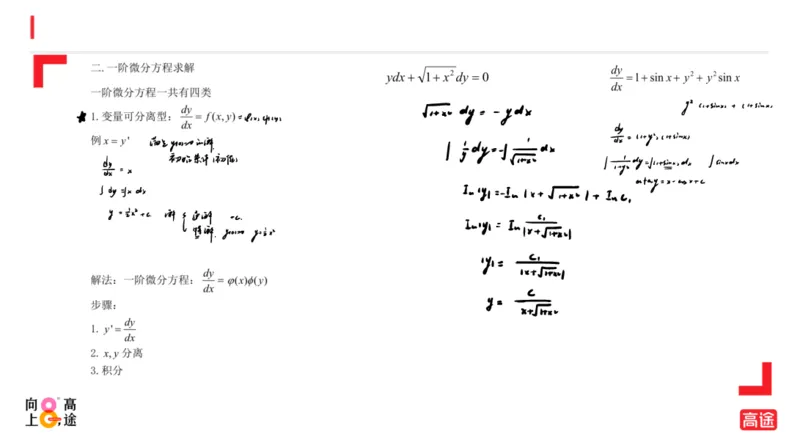 二.一阶微分方程求解
一阶微分方程一共有四类
★ 1. 变量可分离型: dy/dx = f(x, y) = φ(x)φ(y)
例 x = y'
dy/dx = x
∫ dy = ∫ x dx
y = ½x² + C 解 { 通解 +C.
特解. y=½x²
解法: 一阶微分方程: dy/dx = φ(x)ϕ(y)
步骤:
1. y' = dy/dx
2. x, y 分离
3. 积分
ydx + √(1+x²) dy = 0
√(1+x²) dy = -y dx
∫ 1/y dy = -∫ 1/√(1+x²) dx
ln|y| = -ln|x + √(1+x²)| + ln C₁
ln|y| = ln C₁/|x+√(1+x²)|
|y| = C₁/|x+√(1+x²)|
y = C/(x+√(1+x²))
dy/dx = 1 + sin x + y² + y² sin x
y²(1+sinx) + (1+sinx)
dy/dx = (1+y²)(1+sinx)
∫ 1/(1+y²) dy = ∫(1+sinx) dx ∫ sinx dx
arctan y = x - cos x + C
向上高途
高途